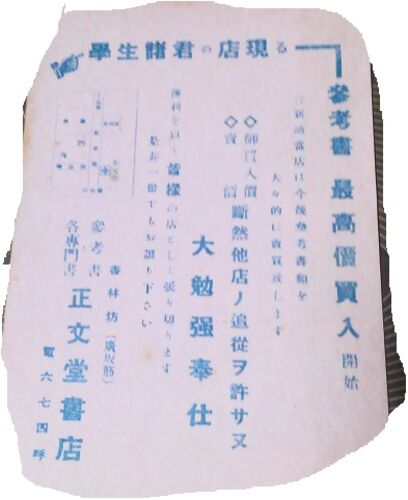 學生諸君の店現る
參考書 最高價買入 開始
今新訪當店は今後參考書類を
大々的に賣買致します
◇御買入價
◇賣價 斷然他店ノ追從ヲ許サヌ
大勉强奉仕
便利を以て皆樣の店として張り切ります
是非一冊でもお讓り下さい
香林坊(廣坂筋)
參考書
各專門書 正文堂書店
電六七四〇番